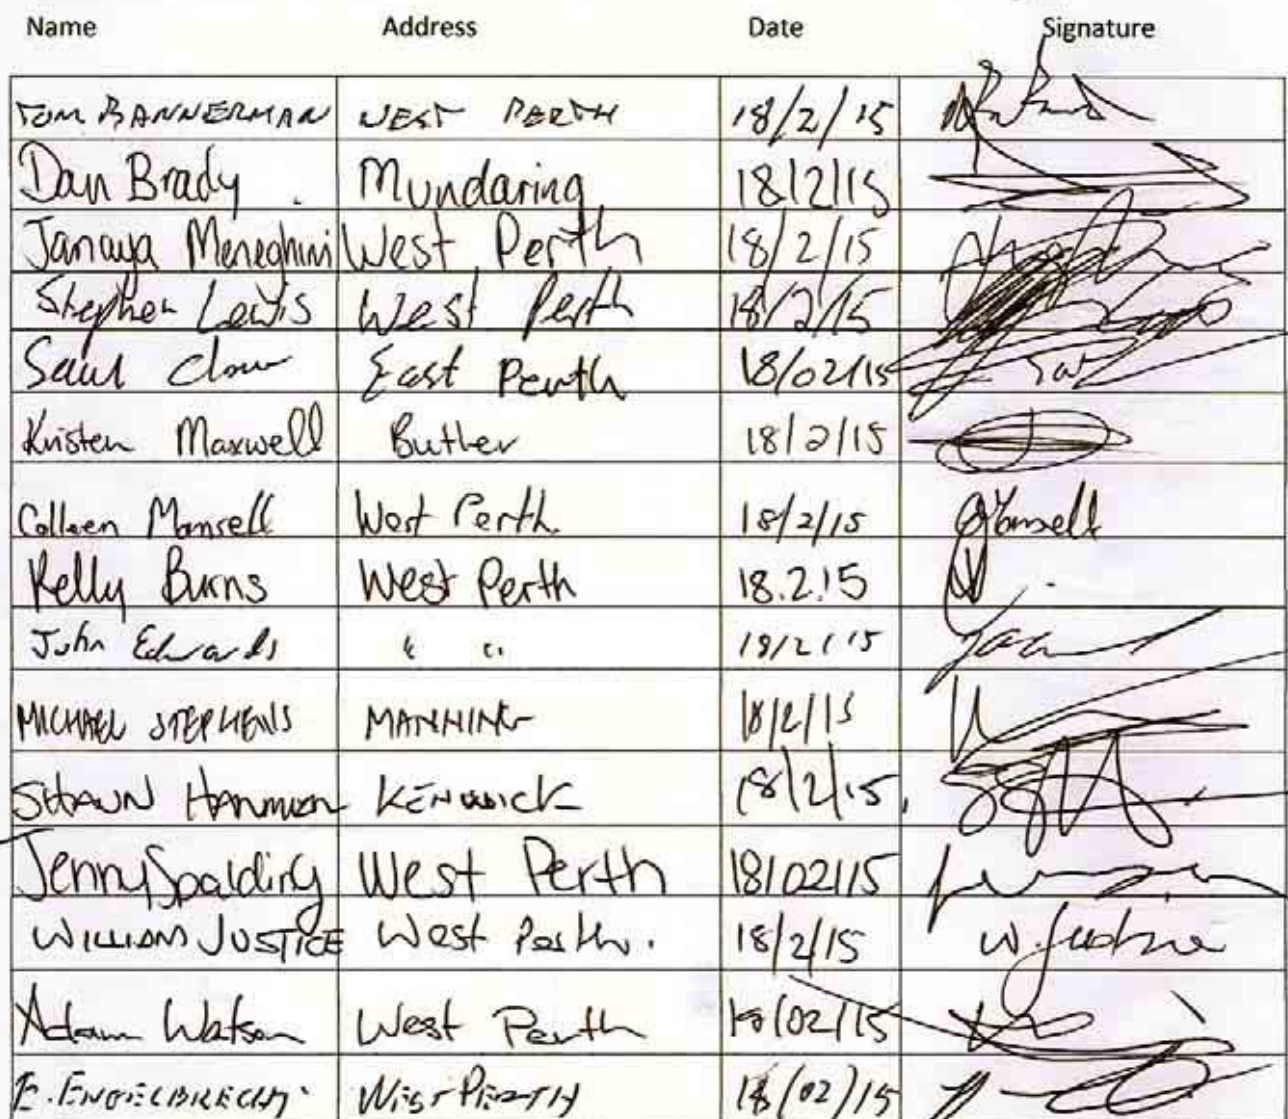 Name Address Date Signature
TOM BANNERMAN WEST PERTH 18/2/15
Dan Brady. Mundaring 18/2/15
Janaya Meneghini West Perth 18/2/15
Stephen Lewis West Perth 18/2/15
Saul Clow East Perth 18/02/15
Kristen Maxwell Butler 18/2/15
Colleen Mansell West Perth. 18/2/15 CMansell
Kelly Burns West Perth 18.2.15
John Edwards " " 18/2/15
MICHAEL STEPHENS MANNING 18/2/15
SHAWN KENWICK 18/2/15
Jenny Spalding West Perth 18/02/15
WILLIAM JUSTICE West Perth. 18/2/15 W. Justice
Adam Watson West Perth 18/02/15
E. ENGELBRECHT West PERTH 18/02/15